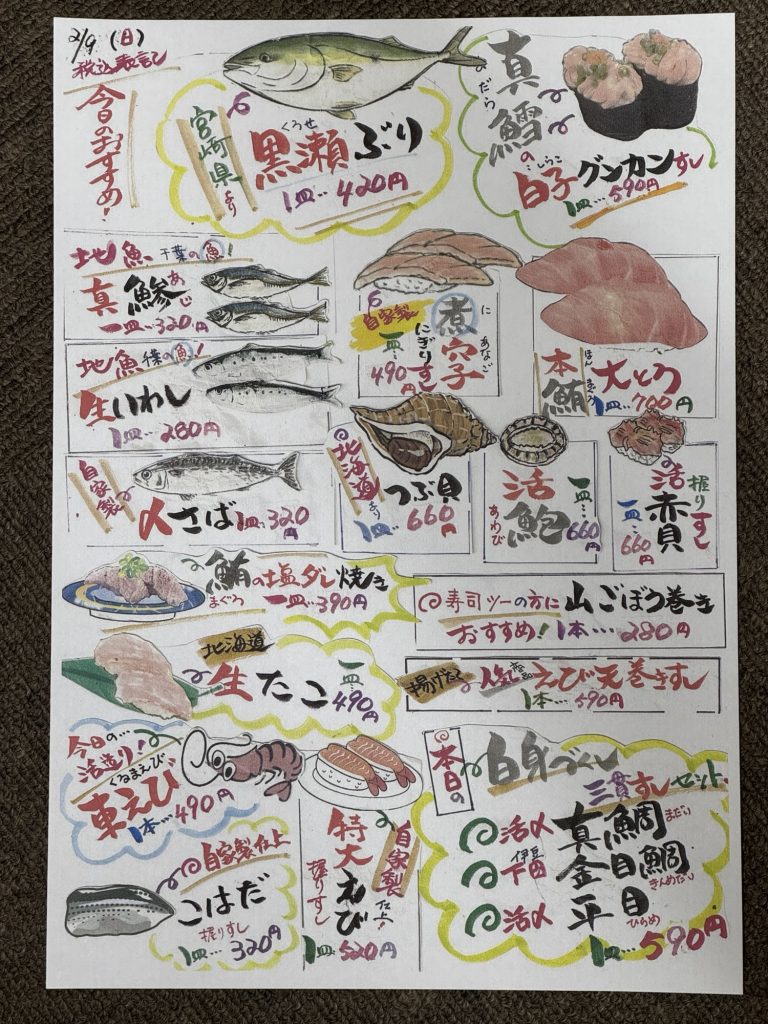 2/9 (日)
税込表記
今日のおすすめ!
宮崎県より
くろせ
黒瀬ぶり
1皿…420円
真鱈の
だら
しらこ
白子グンカンすし
1皿…590円
地魚 千葉の魚!
真鯵
あじ
一皿…320円
地魚 千葉の魚!
生いわし
1皿…280円
自家製
〆さば 1皿…320円
自家製
煮穴子
に あなご
にぎりすし
一皿…490円
本鮪
ほんまぐろ
大とろ
1皿…700円
北海道より
つぶ貝
1皿…660円
活鮑
あわび
一皿…660円
握りすし
活赤貝
一皿…660円
鮪の塩ダレ焼き
まぐろ
一皿…390円
寿司ツーの方に
おすすめ!
山ごぼう巻き
1本…280円
北海道
生たこ
一皿…490円
揚げたて
人気
えび天巻きすし
1本…590円
今日の…
活造り!
くるまえび
車えび
1本…490円
自家製仕上
こはだ
握りすし
1皿…320円
自家製仕上!
特大えび
握りすし
1皿…520円
本日の
白身づくし
三貫すしセット
活〆 真鯛 まだい
伊豆
下田 金目鯛 きんめだい
活〆 平目 ひらめ
1皿…590円